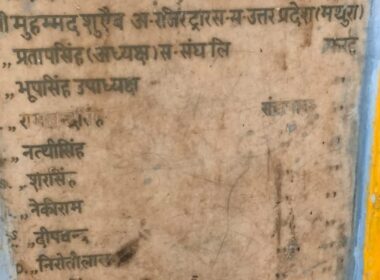 मुहम्मद शुऐब अ-रजिस्ट्रारस-स उत्तर प्रदेश (मथुरा)
,, प्रतापसिंह (अध्यक्ष) स-संघ लि
,, भूपसिंह उपाध्यक्ष
,,
,, नत्थीसिंह
,, शेरसिंह
,, नेकीराम
,, दीपचन्द
,, निरोतीलाल